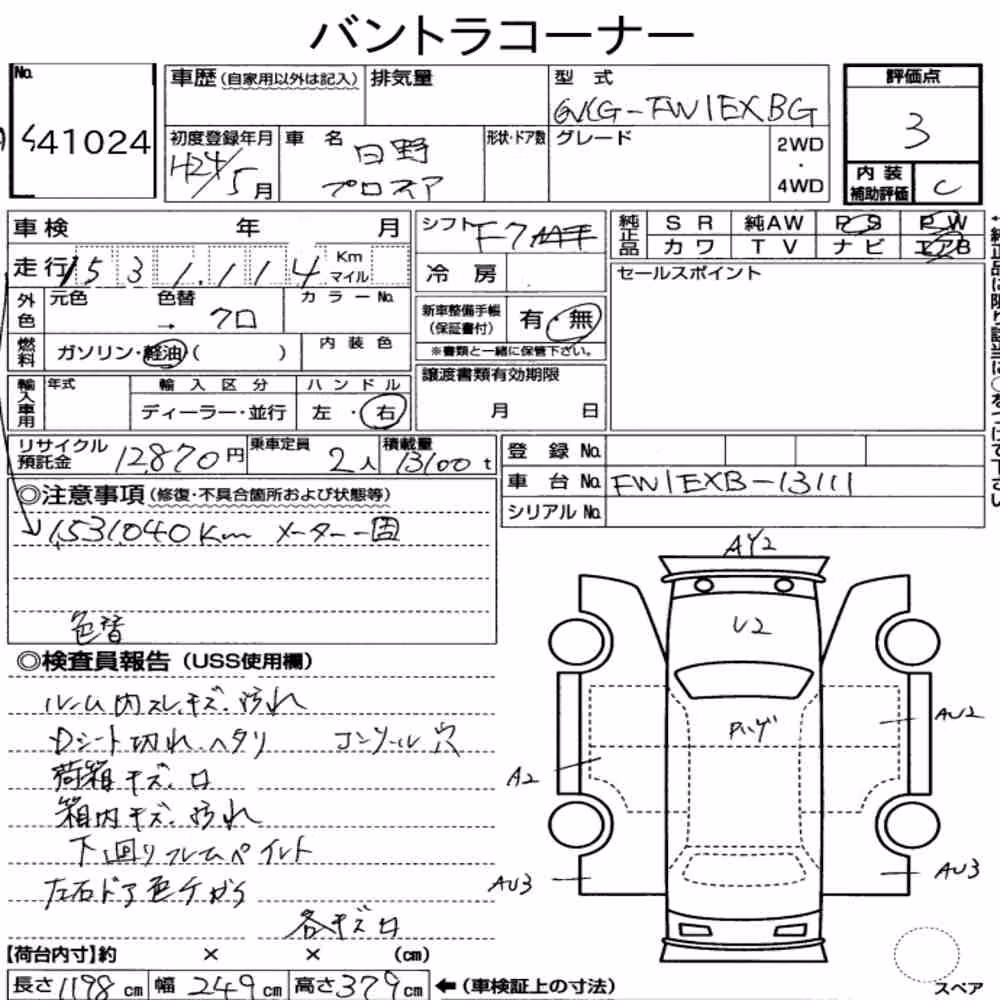 バントラコーナー
No.
41024
車歴 (自家用以外は記入)
排気量
型 式
QKG-FW1EXBG
評価点
3
初度登録年月
H24/5月
車 名
日野
プロフィア
形状・ドア数
グレード
2WD
・
4WD
内装
補助評価
C
車検 年 月
走行 1531,114 Km マイル
シフト F7
冷房
純正品
SR 純AW PS PW
カワ TV ナビ エアB
外色
元色 色替 → クロ
カラーNo.
新車整備手帳
(保証書付)
有・無
※書類と一緒に保管下さい。
セールスポイント
燃料
ガソリン・軽油( )
内装色
輸入車用
年式
輸入区分
ディーラー・並行
ハンドル
左・右
譲渡書類有効期限
月 日
リサイクル
預託金
12870円
乗車定員
2人
積載量
13100 t
登録 No.
車台 No. FW1EXB-13111
シリアル No.
◎注意事項 (修復・不具合箇所および状態等)
1,531,040Km メーター一固
色替
◎検査員報告 (USS使用欄)
ルーム内スレキズ、汚れ
Dシート切れ、ヘタリ コンソール穴
荷箱キズ、凹
箱内キズ、汚れ
下回りフレムペイント
左右ドア色チガイ
各キズ凹
【荷台内寸】約 × × (cm)
長さ1198cm 幅249cm 高さ379cm ←(車検証上の寸法)
AY2
U2
AU2
A2
AU3
AU3
スペア